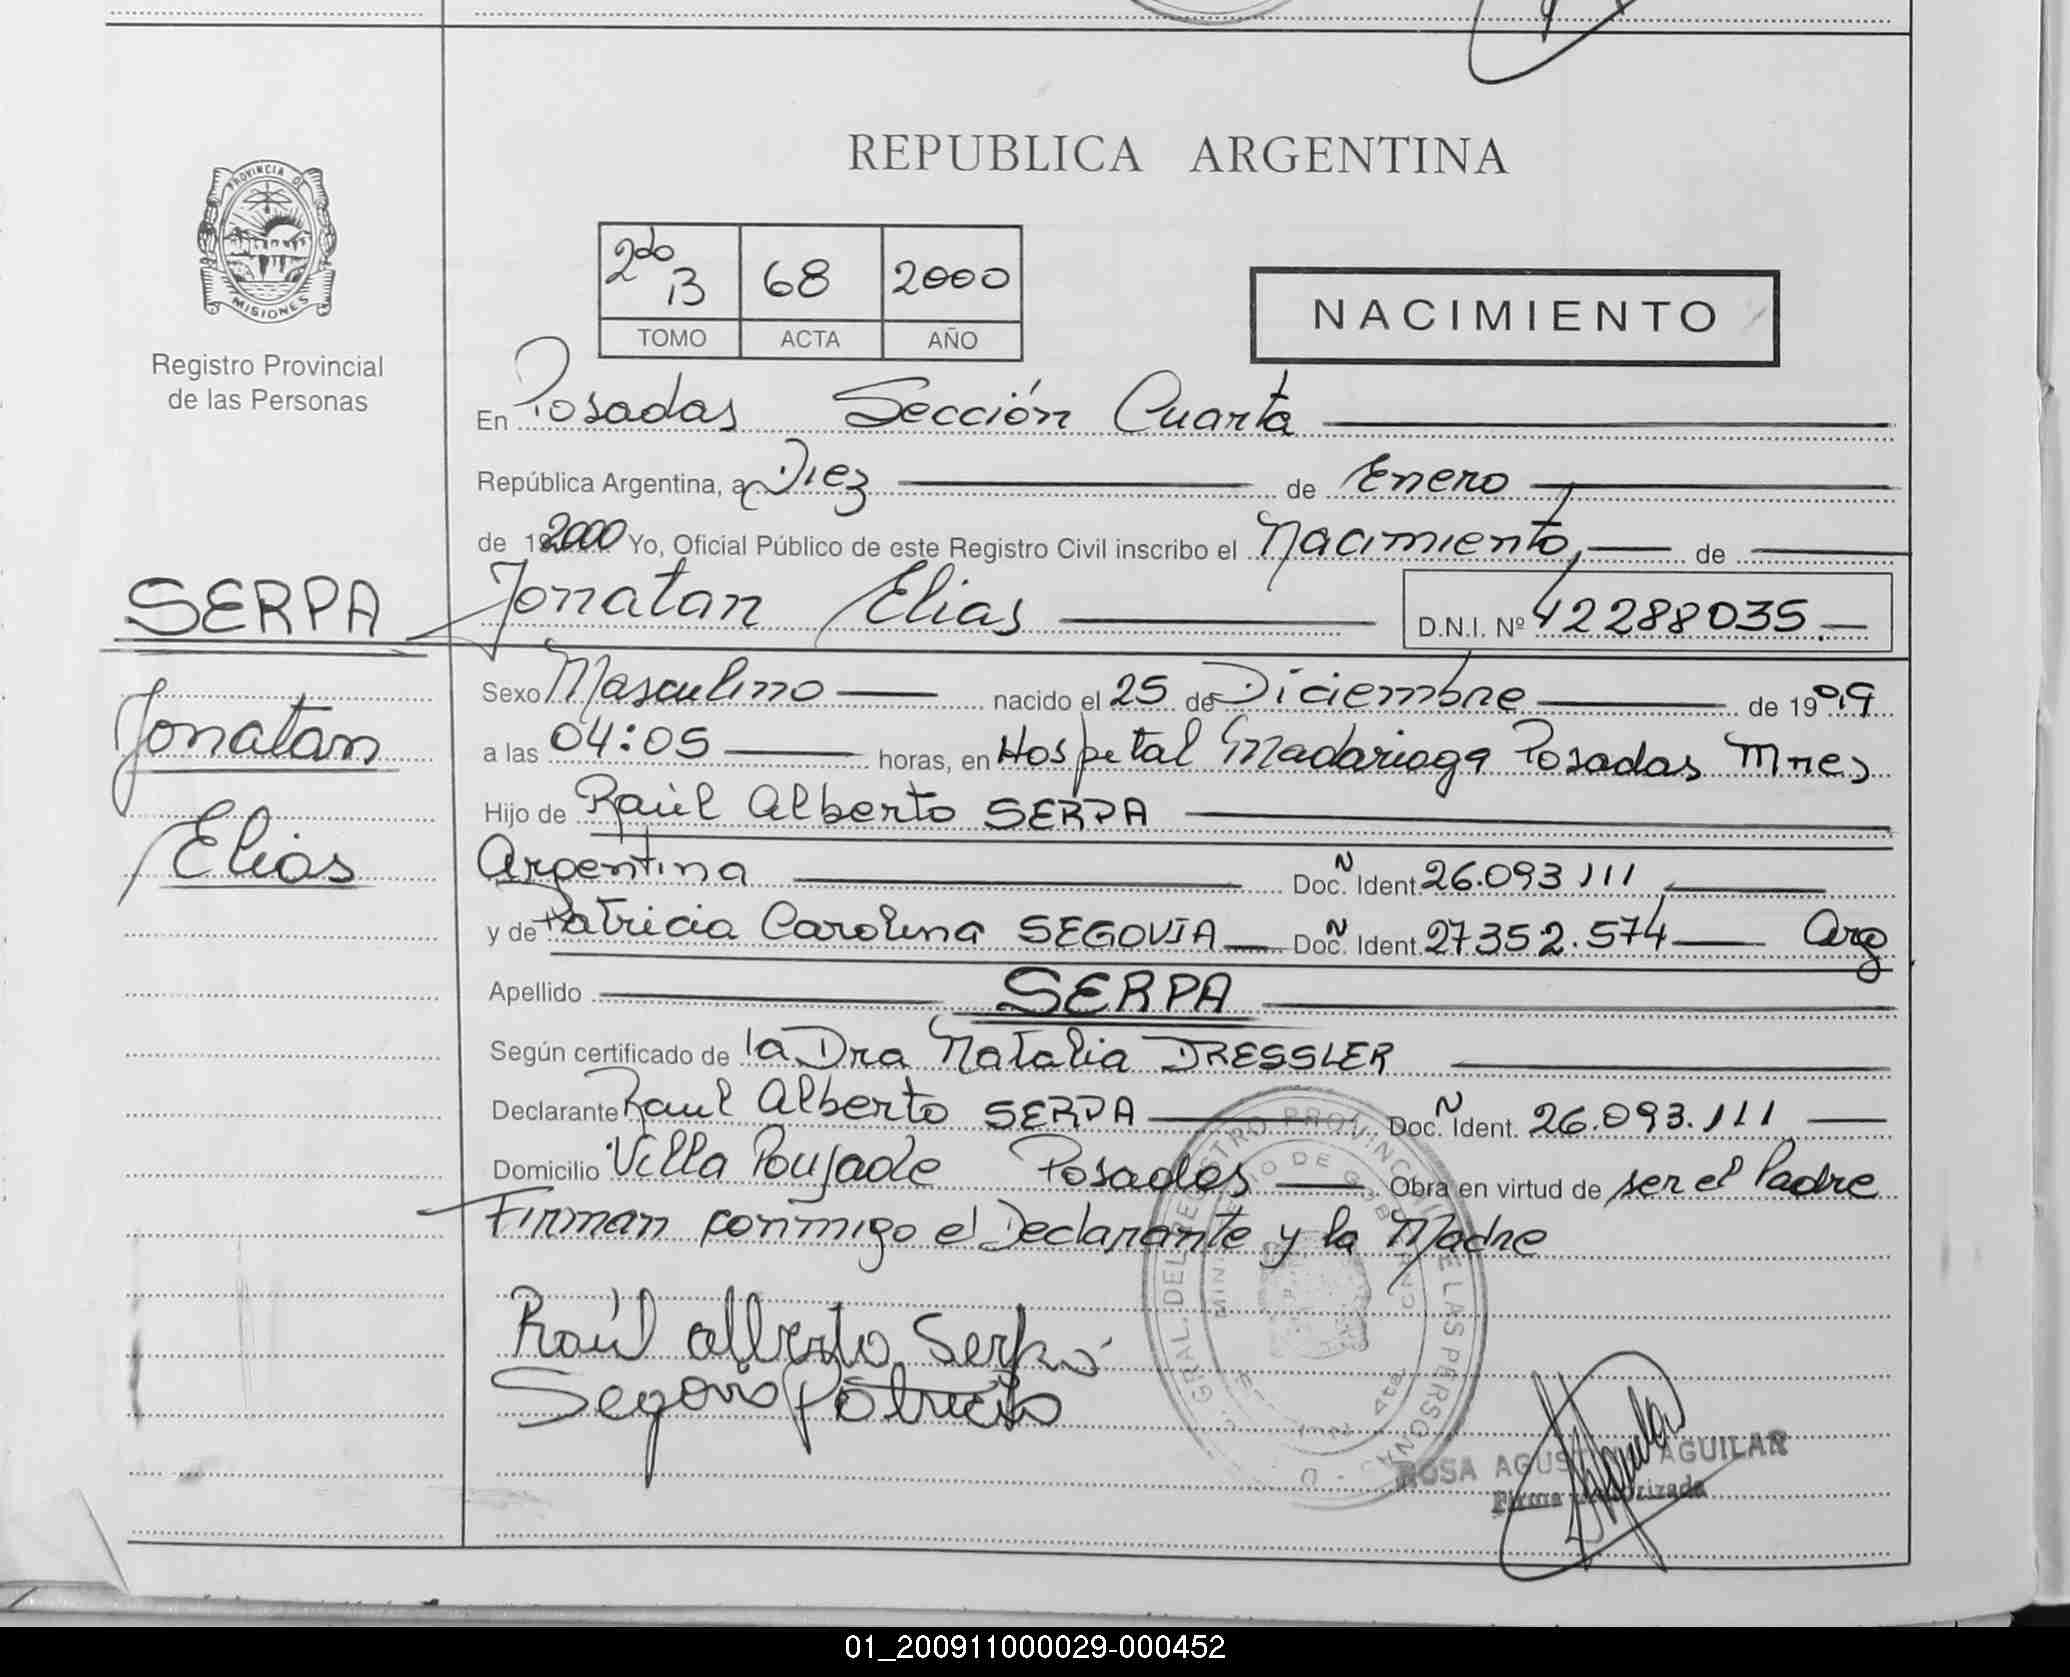 REPUBLICA ARGENTINA
PROVINCIA DE
MISIONES
Registro Provincial
de las Personas
2do B 68 2000
TOMO ACTA AÑO
NACIMIENTO
En Posadas Sección Cuarta
República Argentina, a Diez de Enero
de 2000 Yo, Oficial Público de este Registro Civil inscribo el Nacimiento, de
SERPA
Jonatan Elias D.N.I. Nº 42288035
Jonatan
Elias
Sexo Masculino nacido el 25 de Diciembre de 1999
a las 04:05 horas, en Hospital Madariaga Posadas Mnes
Hijo de Raúl Alberto SERPA
Argentina Doc. Ñ Ident. 26.093.111
y de Patricia Carolina SEGOVIA Doc. Ñ Ident. 27352.574 Arg
Apellido SERPA
Según certificado de la Dra Natalia DRESSLER
Declarante Raul Alberto SERPA Doc. Ñ Ident. 26.093.111
Domicilio Villa Poujade Posadas Obra en virtud de ser el Padre
Firman conmigo el Declarante y la Madre
Raúl Alberto Serpa
Segovia Patricia
GRAL. DEL REGISTRO PROVINCIAL DE LAS PERSONAS
ROSA AGUSTINA AGUILAR
Firma Autorizada
01_200911000029-000452